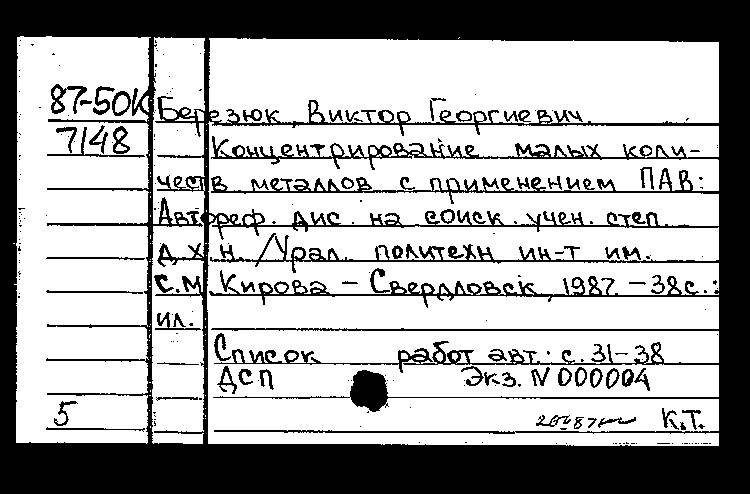 87-50К Березюк, Виктор Георгиевич.
7148 Концентрирование малых коли-
честв металлов с применением ПАВ:
Автореф. дис. на соиск. учен. степ.
д.х.н. /Урал. политехн ин-т им.
С.М. Кирова - Свердловск, 1987. - 38с.:
ил.
Список работ авт.: с. 31-38
ДСП Экз. N 000004
5 К.Т.